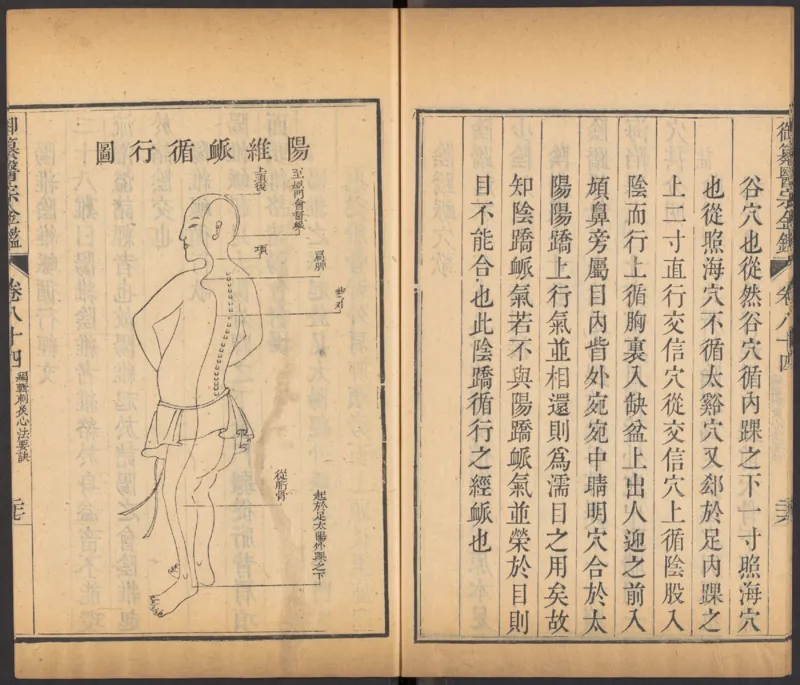 谷穴也從然谷穴循內踝之下一寸照海穴
也從照海穴不循太谿穴又郄於足內踝之
上二寸直行交信穴從交信穴上循陰股入
陰而行上循胸裏入缺盆上出人迎之前入
頄鼻旁屬目內眥外宛宛中睛明穴合於太
陽陽蹻上行氣並相還則爲濡目之用矣故
知陰蹻衇氣若不與陽蹻衇氣並榮於目則
目不能合也此陰蹻循行之經衇也
御纂醫宗金鑑
卷八十四
陽維衇循行圖
至瘂門會督衇
上項後
項
肩胛
從䯒骨
起於足太陽外踝之下
御纂醫宗金鑑
卷八十四
編輯刺灸心法要訣